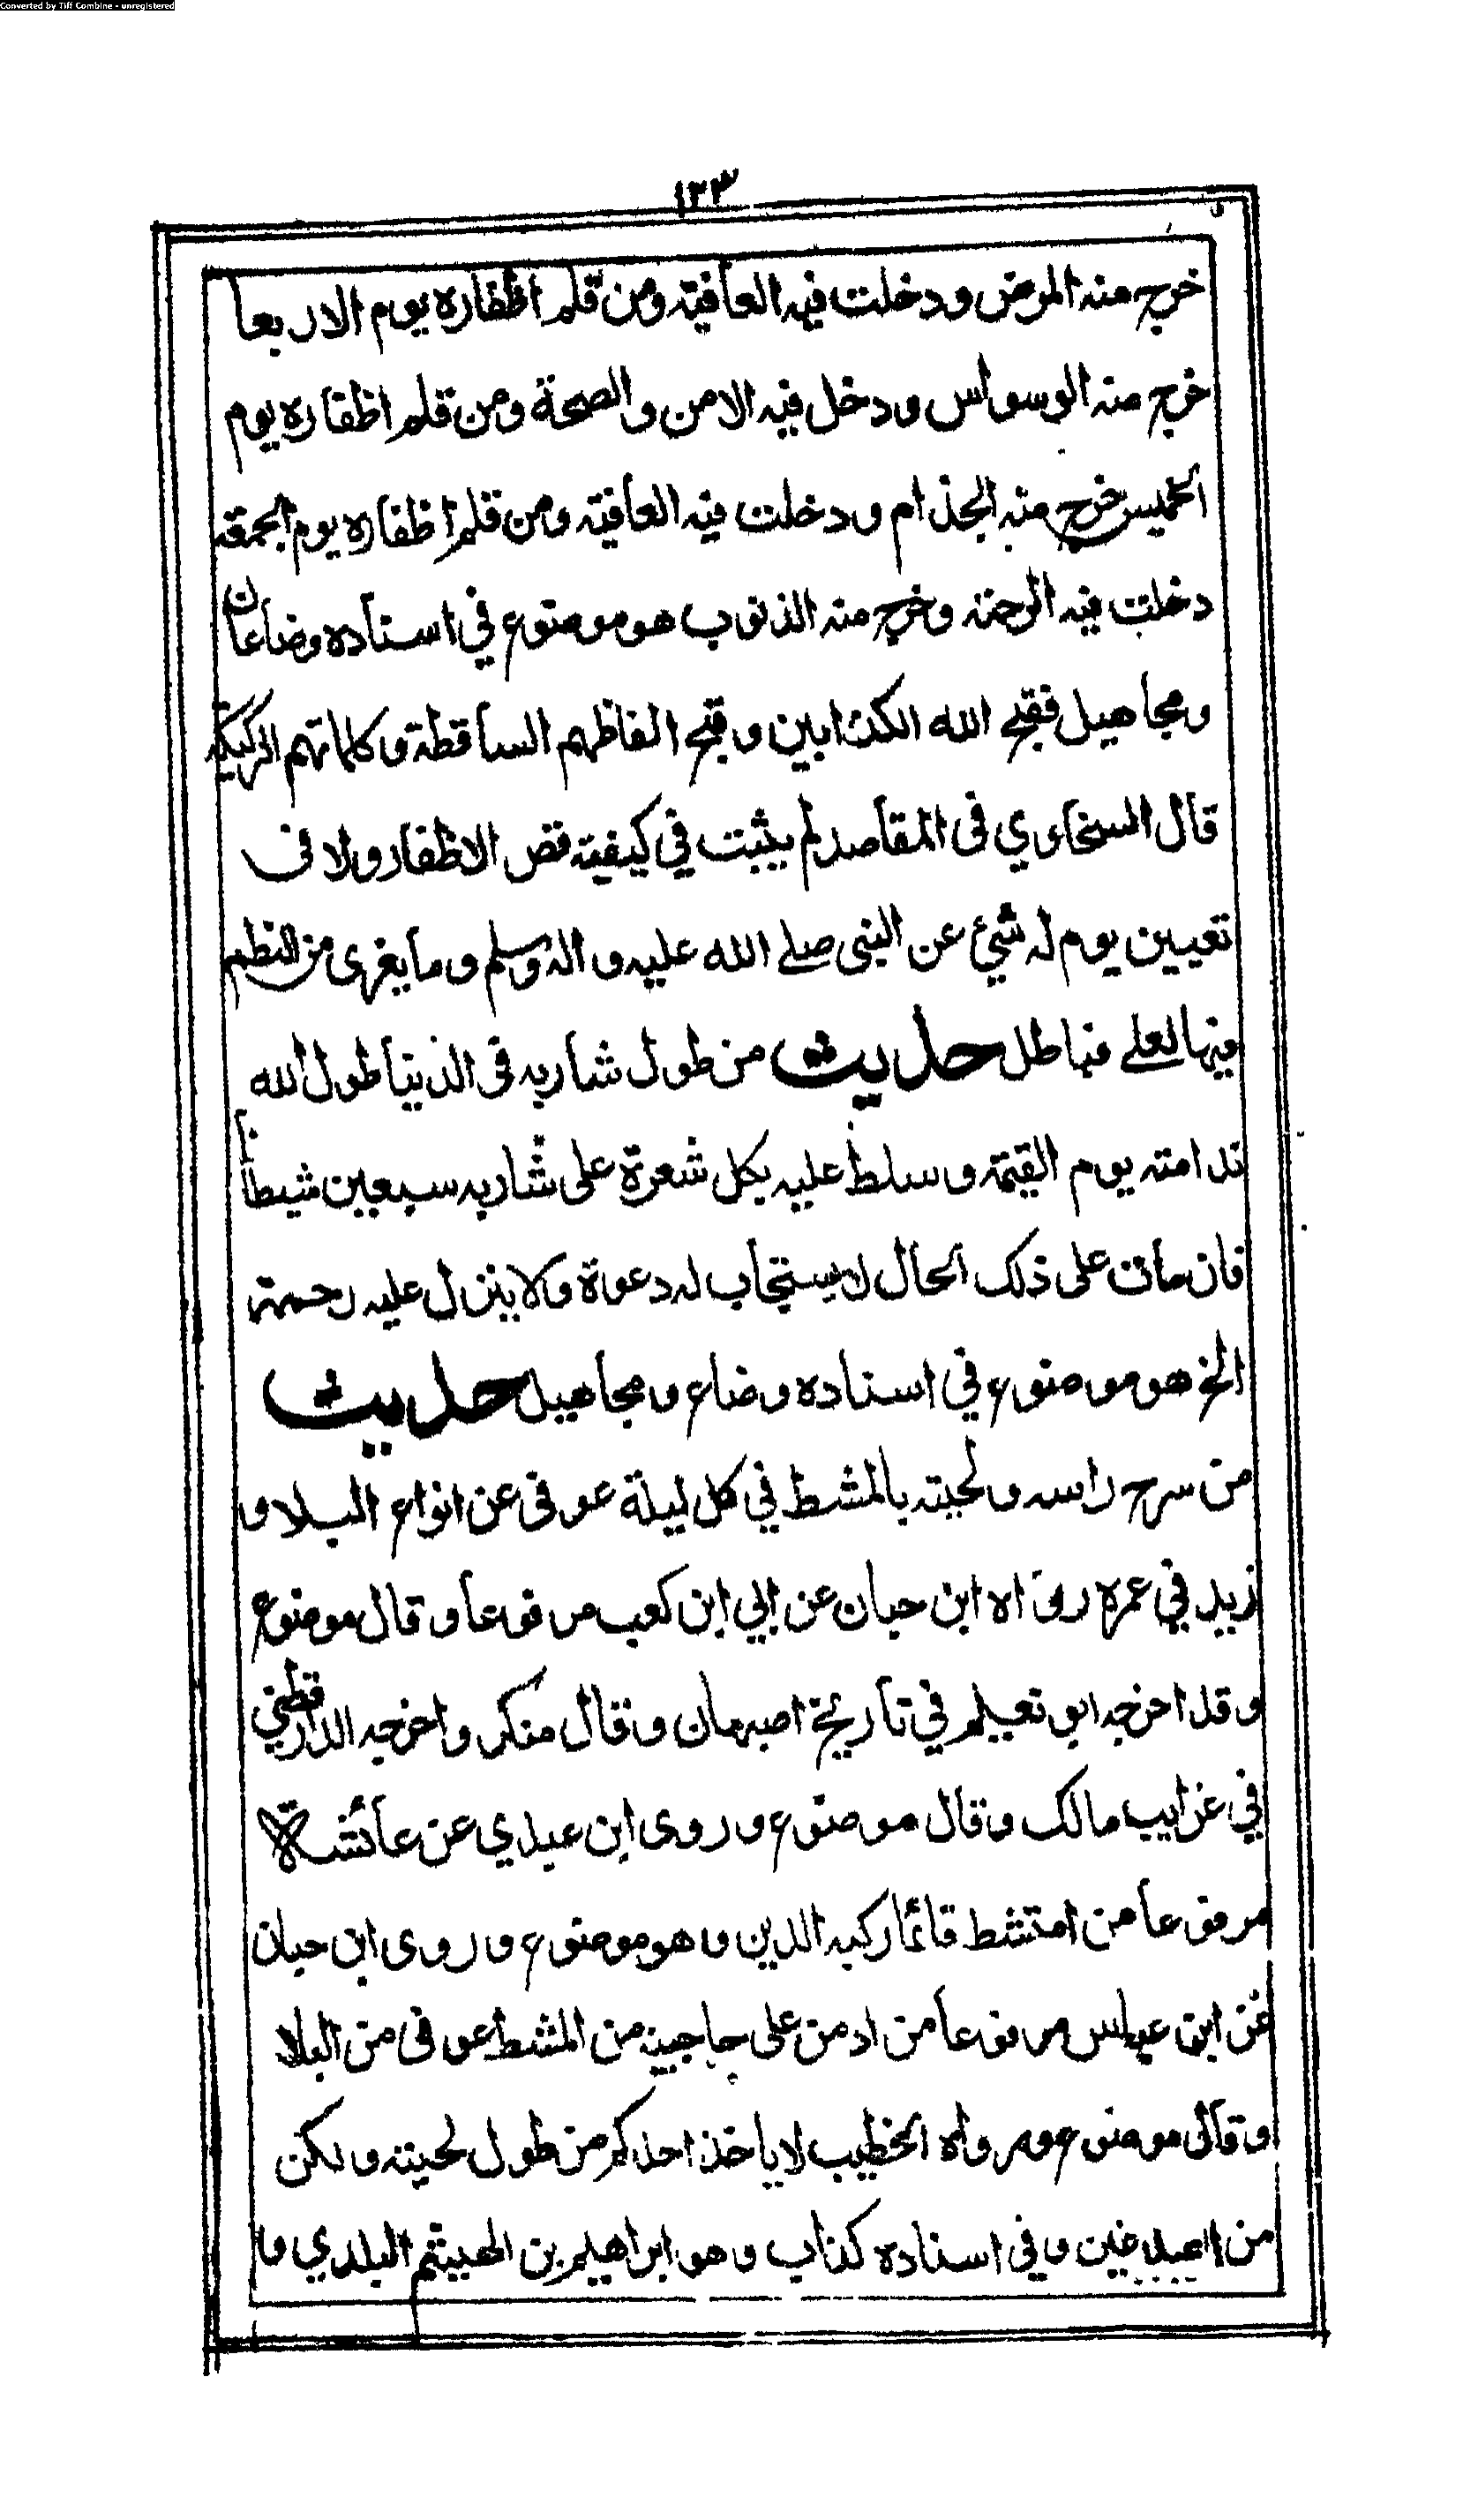 Converted by Tiff Combine - unregistered
١٢٣
خرج منه المرض ودخلت فيه العافية ومن قلم اظفاره يوم الاربعا
خرج منه الوسواس ودخل فيه الامن والصحة ومن قلم اظفاره يوم
الخميس خرج منه الجذام ودخلت فيه العافية ومن قلم اظفاره يوم الجمعة
دخلت فيه الرحمة وخرج منه الذنوب هو موضوع في اسناده وضاعان
ومجاهيل فقبح الله الكذابين وقبح الفاظهم الساقطة وكلماتهم الركيكة
قال السخاوي في المقاصد لم يثبت في كيفية قص الاظفار ولا في
تعيين يوم له شيء عن النبي صلے الله عليه واله وسلم وما يعزى من النظم
فيها لعلے فباطل حديث من طول شاربه في الدنيا طول الله
ندامته يوم القيمة وسلط عليه بكل شعرة على شاربه سبعين شيطانا
فان مات على ذلك الحال لا يستجاب له دعوة ولا ينزل عليه رحمة
الخ هو موضوع في اسناده وضاع ومجاهيل حديث
من سرح راسه ولحيته بالمشط في كل ليلة عوفى عن انواع البلا و
زيد في عمره رواه ابن حبان عن ابي ابن كعب مرفوعا وقال موضوع
وقد اخرجه ابو نعيم في تاريخ اصبهان وقال منكر واخرجه الدارقطني
في غرايب مالك وقال موضوع وروى ابن عدي عن عائشة
مرفوعا من امتشط قائما ركبه الدين وهو موضوع وروى ابن حبان
عن ابن عباس مرفوعا من ادمن على حاجبيه من المشط عوفى من البلا
وقال موضوع ورواه الخطيب لا ياخذ احدكم من طول لحيته ولكن
من الصدغين وفي اسناده كذاب وهو ابراهيم بن الهيثم البلدي و